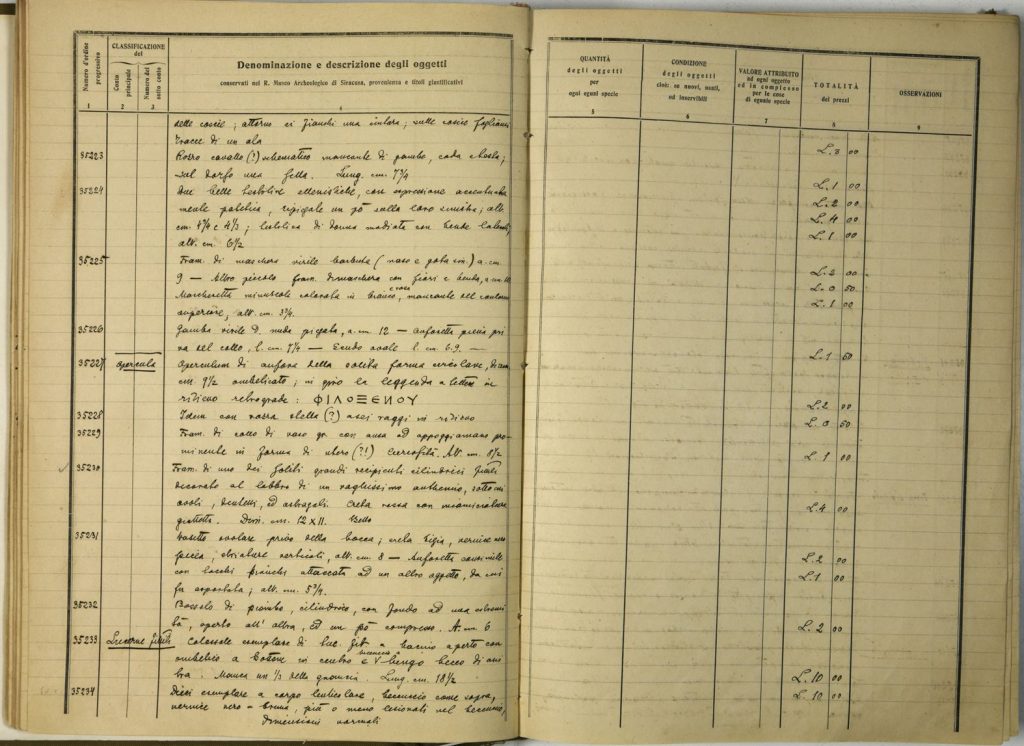 Numero d'ordine progressivo
CLASSIFICAZIONE del
Conto principale
Numero del sotto conto
Denominazione e descrizione degli oggetti
conservati nel R. Museo Archeologico di Siracusa, provenienza e titoli giustificativi
1 2 3 4
delle coscie; attorno ai fianchi una; sulle coscie
tracce di un ala
35223 Rozzo cavallo (?) schematico mancante di gambe, coda e testa;
sul dorso una sella. Lung. cm. 7¾
35224 Due belle testoline ellenistiche, con espressione accentuata
mente patetica, ripiegate un pò sulla loro sinistra; alt.
cm. 4¾ e 4⅓; testolina di donna modiata con bende laterali,
alt. cm. 6½
35225 Fram. di maschera virile barbuta (naso e gota sin.) a. cm.
9 — Altro piccolo fram. di maschera con fiori e benda, a. cm.
Mascheretta minuscola colorata in bianco e rosa, mancante del contorno
superiore; alt. cm. 3¾.
35226 Gamba virile D. nuda piegata, a. cm. 12 — anforetta pri
va del collo, l. cm. 7¼ — Scudo ovale l. cm. 6.9. —
35227 opercula Operculum di anfora della solita forma circolare, diam.
cm. 9½ ombelicato; in giro la leggenda a lettere in
rilievo retrograde: ΦΙΛΟΞΕΝΟΥ
35228 Idem con rozza stella (?) a sei raggi in rilievo
35229 Fram. di collo di vaso gr. con ansa ed appoggiamano pro-
minente in forma di utero (?!) Curiosità. Alt. cm. 8½
35230 Fram. di uno dei soliti grandi recipienti cilindrici fittili
decorato al labbro di un vaghissimo anthemio, sotto cui
ovoli, dentelli, ed astragali. Creta rossa con
. Dim. cm. 12 x 11. Bello
35231 Vasetto ovolare privo della bocca; creta bigia, vernice nera
, striature verticali, alt. cm. 8 — Anforetta
con attaccata ad un altro oggetto, da cui
fu asportata; alt. cm. 5¾.
35232 Bossolo di piombo, cilindrico, con fondo ad una estremi
tà, aperto all'altra, ed un pò compresso. A. cm. 6
35233 Lucerne fittili Colossale esemplare di luc. fit. a bacino aperto con
ombelico a bottone in centro e lungo becco
. Manca un ⅓ della. Lung. cm. 18½
35234 Dieci esemplare a corpo lenticolare, beccuccio come sopra,
vernice nero-bruna, più o meno lesionati nel beccuccio,
dimensioni normali
QUANTITÀ degli oggetti per ogni eguai specie
CONDIZIONE degli oggetti cioè: se nuovi, usati, od inservibili
VALORE ATTRIBUITO ad ogni oggetto ed in complesso per le cose di eguale specie
TOTALITÀ dei prezzi
OSSERVAZIONI
5 6 7 8 9
L. 3 00
L. 1 00
L. 2 00
L. 4 00
L. 1 00
L. 2 00
L. 0 50
L. 1 00
L. 1 50
L. 2 00
L. 0 50
L. 1 00
L. 4 00
L. 2 00
L. 1 00
L. 2 00
L. 10 00
L. 10 00